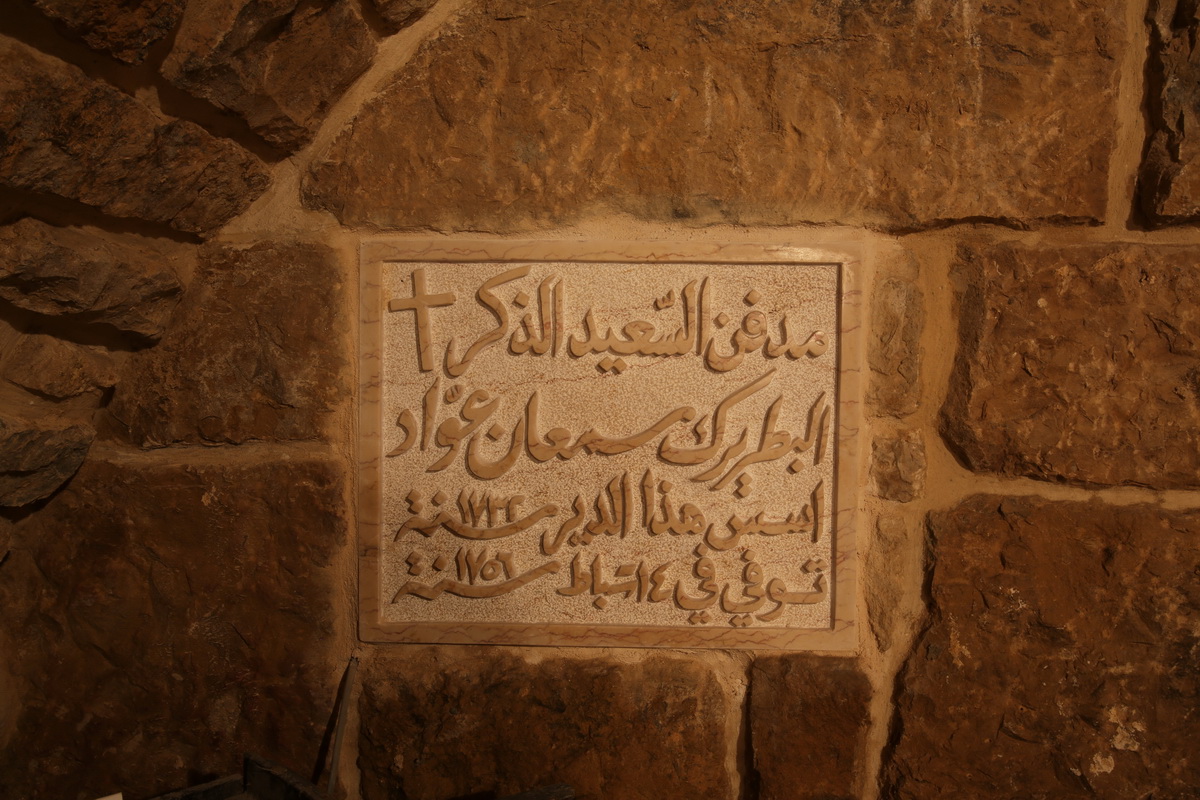 مدفن السّعيد الذكر
البطريرك سمعان عوّاد
اسس هذا الدير سنة ١٧٣٢
توفي في ١٤ شباط سنة ١٧٥٦